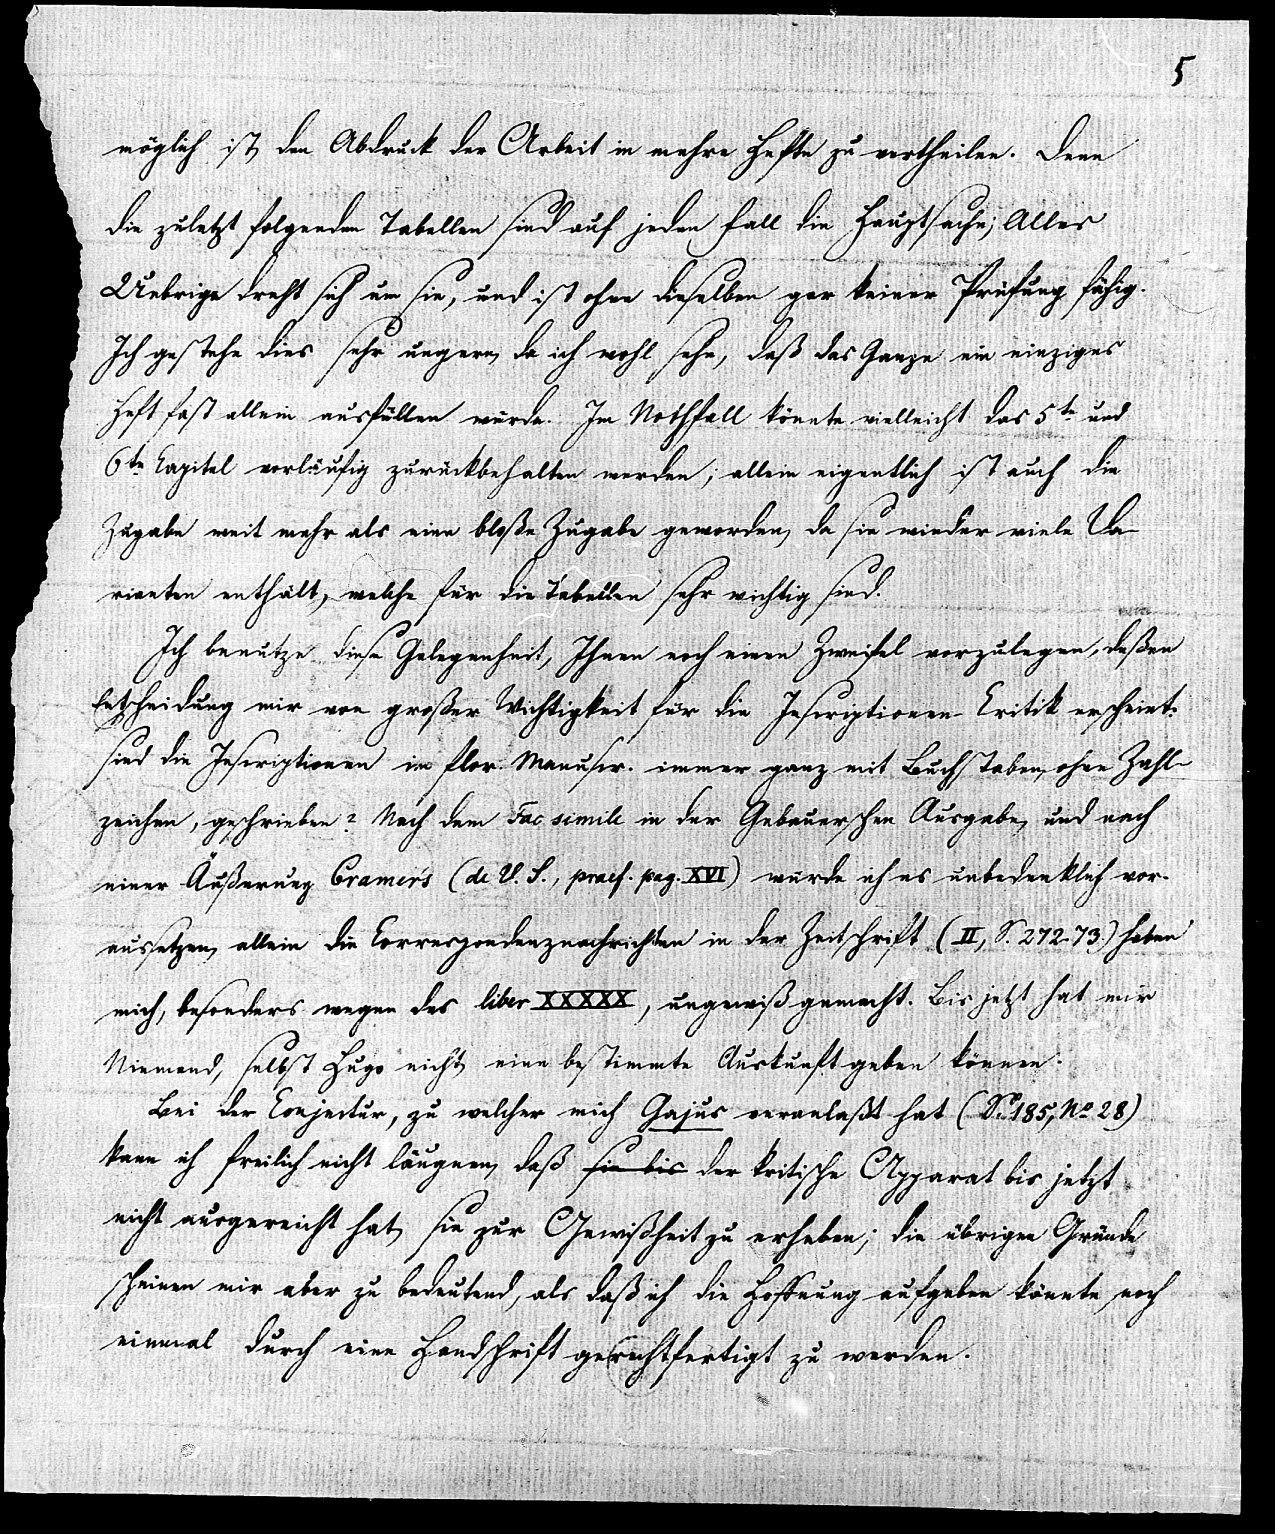 5
möglich ist, den Abdruck der Arbeit in mehre Hefte zu vertheilen. Denn
die zuletzt folgenden Tabellen sind auf jeden Fall die Hauptsache; Alles
Uebrige dreht sich um sie, und ist ohne dieselben gar keiner Prüfung fähig.
Ich gestehe dies sehr ungern, da ich wohl sehe, daß das Ganze ein einziges
Heft fast allein ausfüllen würde. Im Nothfall könnte vielleicht das 5te und
6te Capitel vorläufig zurückbehalten werden; allein eigentlich ist auch die
Zugabe weit mehr als eine bloße Zugabe geworden, da sie wieder viele Va-
rianten enthält, welche für die Tabellen sehr wichtig sind.
Ich benutze diese Gelegenheit, Ihnen noch einen Zweifel vorzulegen, deßen
Entscheidung mir von großer Wichtigkeit für die Inscriptionen-Critik erscheint:
sind die Inscriptionen im flor. Manuscr. immer ganz mit Buchstaben, ohne Zahl-
zeichen, geschrieben? Nach dem Fac simile in der Gebauerschen Ausgabe, und nach
einer Äußerung Cramer's (de V. S., praef. pag. XVI) würde ich es unbedenklich vor-
aussetzen, allein die Correspondenznachrichten in der Zeitschrift (II, S. 272-73.) haben
mich, besonders wegen des liber XXXXX, ungewiß gemacht. Bis jetzt hat mir
Niemand, selbst Hugo nicht, eine bestimmte Auskunft geben können.
Bei der Conjectur, zu welcher mich Gajus veranlaßt hat (S. 185, No 28)
kann ich freilich nicht läugnen, daß sie bis der kritische Apparat bis jetzt
nicht ausgereicht hat, sie zur Gewißheit zu erheben; die übrigen Gründe
scheinen mir aber zu bedeutend, als daß ich die Hoffnung aufgeben könnte, noch
einmal durch eine Handschrift gerechtfertigt zu werden.